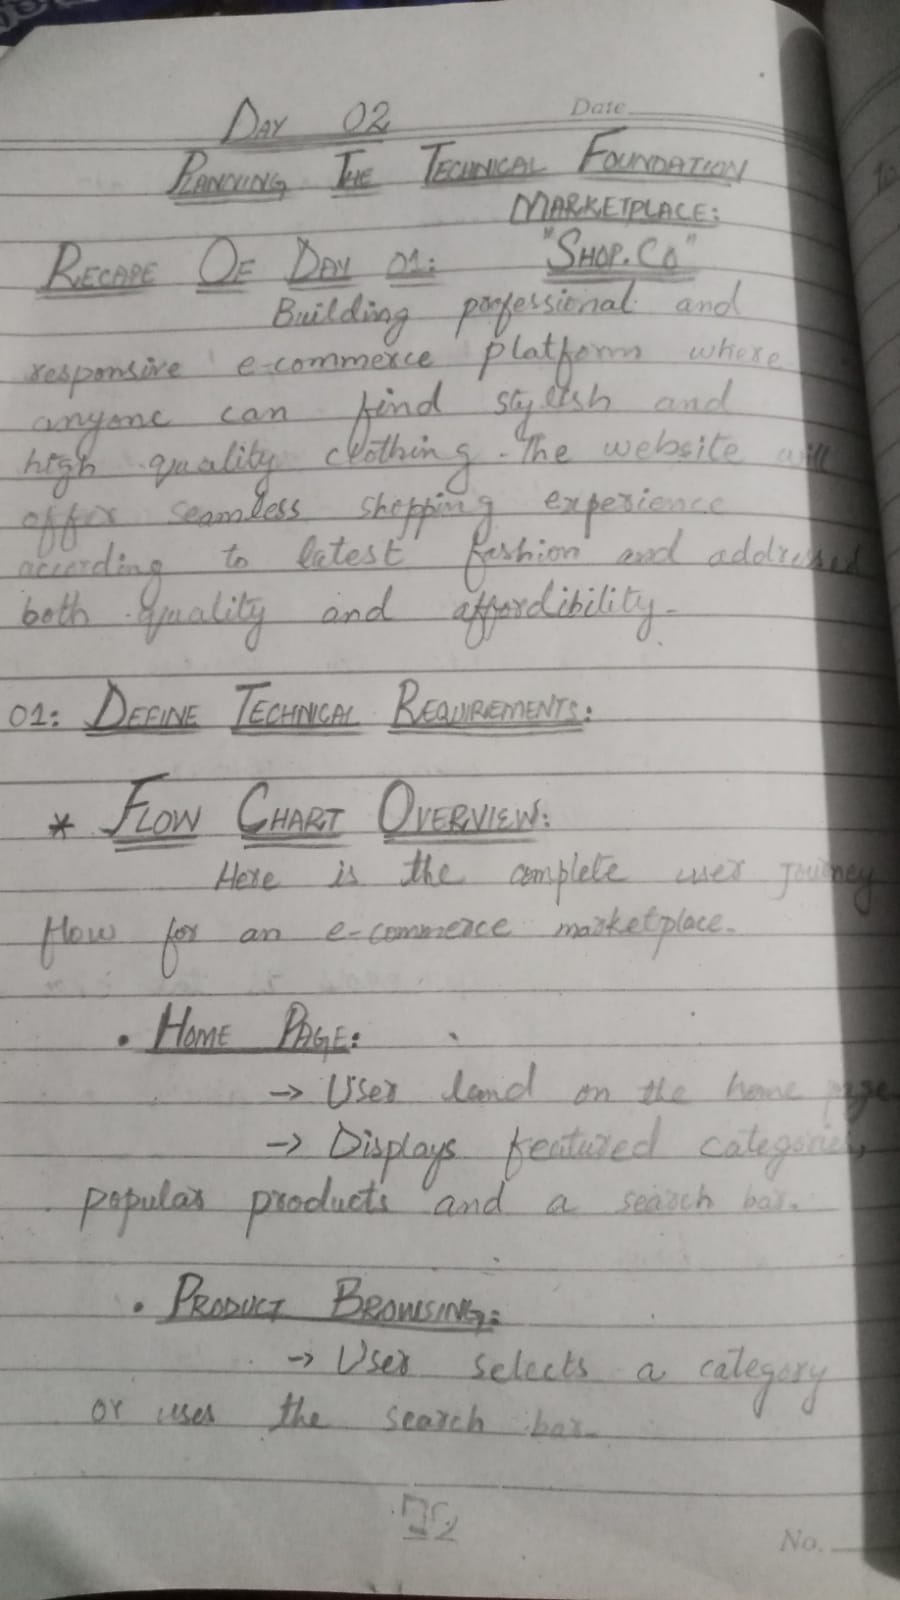 Date
DAY 02
PLANNING THE TECHNICAL FOUNDATION
MARKETPLACE:
RECAPE OF DAY 01: "SHOP.CO"
Building professional and
responsive e-commerce platform where
anyone can find stylish and
high quality clothing. The website will
offer seamless shopping experience
according to latest fashion and addressed
both quality and affordibility.
01: DEFINE TECHNICAL REQUIREMENTS:
* FLOW CHART OVERVIEW:
Here is the complete user journey
flow for an e-commerce marketplace.
• HOME PAGE:
→ User land on the home page
→ Displays featured categories,
popular products and a search bar.
• PRODUCT BROWSING:
→ User selects a category
or uses the search bar.
No.